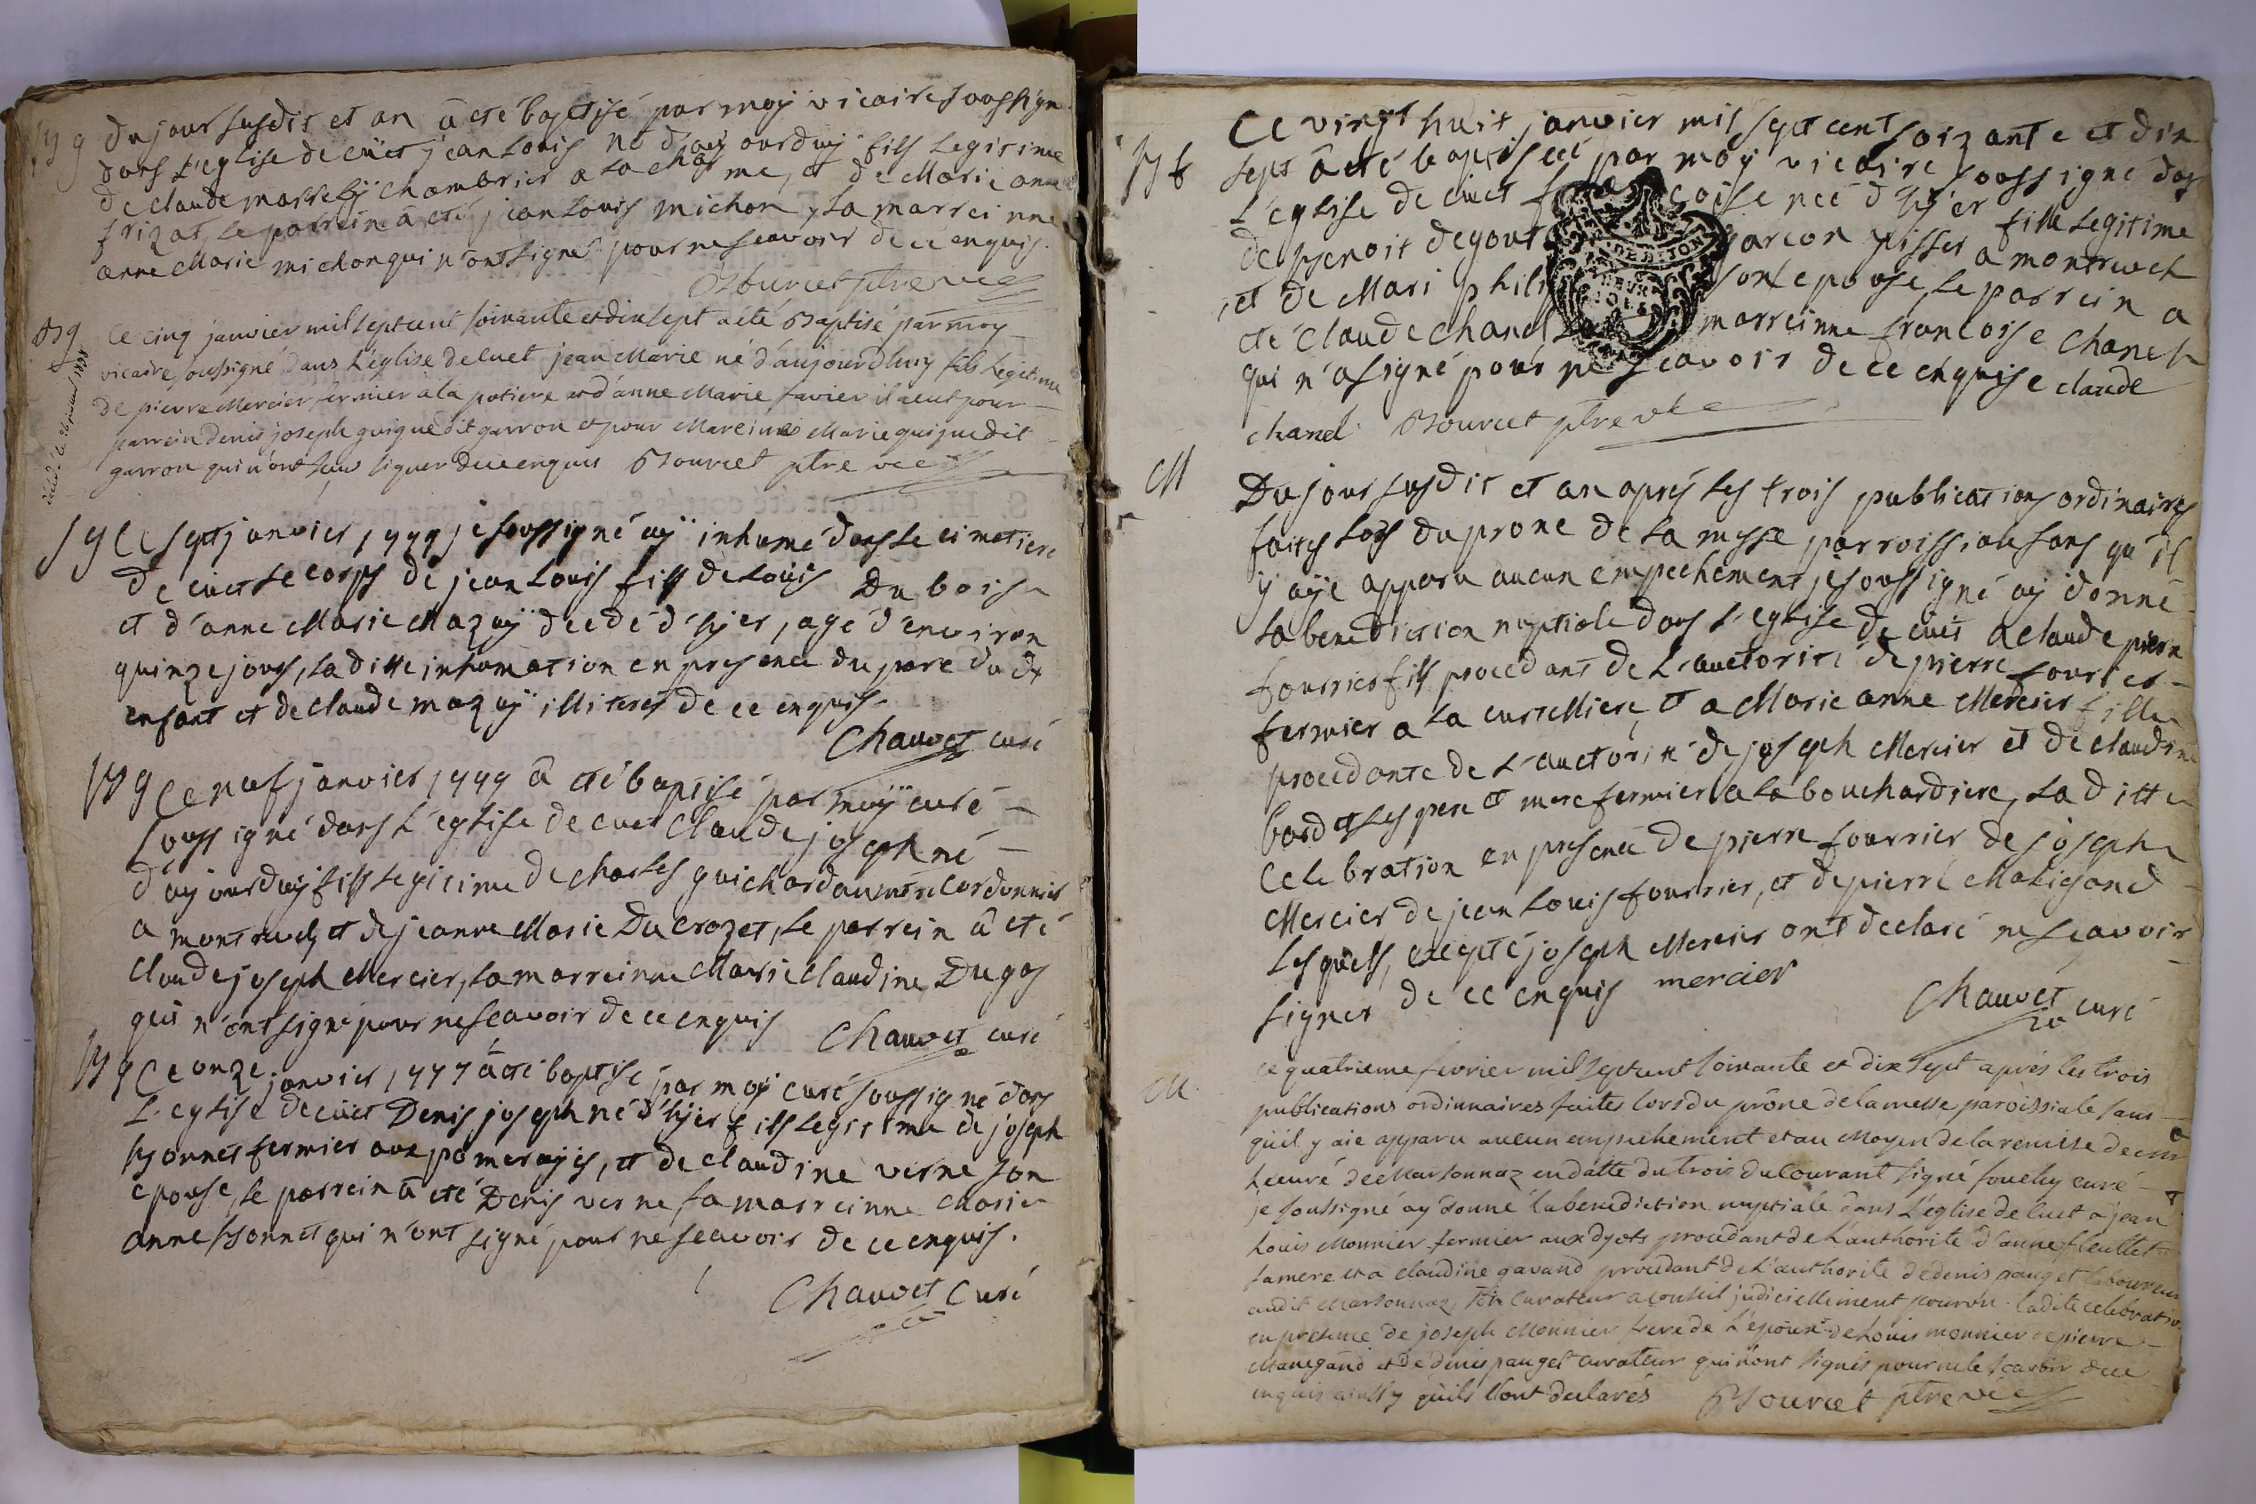 B g
du jour susdit et an â eté baptisé par moy vicaire soussigne
dans l'eglise de cuet jean Louis né d'aujourduy fils legitime
de claude masse chambrier a la charme, et de Marie anne
frizat, le parrein â eté jean Louis michon, la marreinne
anne Marie michon qui n'ont signé pour ne sçavoir de ce enquis.
Bourcet ptre vce
B g
Ce cinq janvier mil sept cent soixante et dix sept a eté Baptisé par moy
vicaire soussigné dans l'église de Cuet jean Marie né d'aujourd'huy fils Legitime
de pierre Mercier fermier a la potiere et d'anne Marie favier il a eut pour
parrein denis joseph guigue dit garron et pour Mareinne Marie guigue dit
garron qui n'ont sçu signer de ce enquis Bourcet ptre vce
S g Ce sept janvier 1777 je soussigné aÿ inhumé dans le cimetiere
de cuet le corps de jean Louis fils de Loüis Dubois
et d'anne Marie Mazuÿ decedé d'hÿer, agé d'environ
quinze jours, la ditte inhumation en presence du pere du dt
enfant et de claude mazuÿ illiterés de ce enquis.
Chauvet curé
B g Ce neuf janvier 1777 â eté baptisé par moÿ curé
soussigné dans l'eglise de cuet Claude joseph né
d'aujourduÿ fils legitime de charles guichardan mtre Cordonnier
a montrevel, et de jeanne Marie Ducrozet, le parrein â eté
Claude joseph Mercier, la marreinne Marie Claudine Dugas
qui n'ont signé pour ne sçavoir de ce enquis Chauvet curé
B g Ce onze janvier 1777 â eté baptisé par moÿ curé soussigné dans
L'eglise de cuet Denis joseph né d'hÿer fils legitime de joseph
Bonnet fermier aux pomeraÿes, et de claudine verne son
epouse, le parrein â eté Denis verne, sa marreinne Marie
anne Bonnet qui n'ont signé pour ne sçavoir de ce enquis.
Chauvet Curé
B f
Ce vingt huit janvier mil sept cent soixante et dix
sept â eté baptiseé par moÿ vicaire soussigné dans
L'eglise de cuet françoise neé d'hÿer fille Legitime
de Benoit degout garcon tisser a montrevel
et de Mari phili son epouse, le parrein a
eté Claude Chanel, la marreinne francoise Chanel
qui n'a signé pour ne sçavoir de ce enquise claude
chanel Bourcet ptre vce
M
Du jour susdit et an aprés les trois publications ordinaires
faites lors du prone de la messe parroissiale sans qu'il
ÿ aÿe apparu aucun empechement je soussigné aÿ donné
la benediction nuptiale dans l'eglise de cuet a claude pierre
fourrier fils procedant de L'auctorité de pierre fourrier
fermier a la curtelliere, et a Marie anne Mercier fille
procedante de L'auctorité de joseph Mercier et de claudine
bordet ses pere et mere fermier a la bouchardiere, la ditte
Celebration en presence de pierre fourrier de joseph
Mercier de jean Louis fourrier, et de pierre Maligand
Lesquels, excepté joseph Mercier ont declaré ne sçavoir
signer de ce enquis mercier
Chauvet curé
M
Ce quatrieme fevrier mil sept cent soixante et dix sept aprés les trois
publications ordinnaires faites lors du prône de la messe paroissiale sans
qu'il y aie apparu aucun empechement et au Moyen de la remise de mr
Le curé de Marsonnaz en datte du trois du Courant signé fouchy curé
je soussigné ay donné la benediction nuptiale dans L'église de Cuet a jean
Louis Monnier fermier aux dyots procedant de L'authorité d'anne fleullet
sa mere et a claudine gavand procedant de L'authorité de denis pauget laboureur
audit Marsonnaz, son Curateur a conseil judiciellement pourvu. ladite celebration
en presence de joseph Monnier frere de L'epoux de Louis monnier de pierre
Manegand et de denis pauget curateur qui n'ont signés pour ne le sçavoir de ce
enquis ainsi qu'ils l'ont declarés Bourcet ptre vce